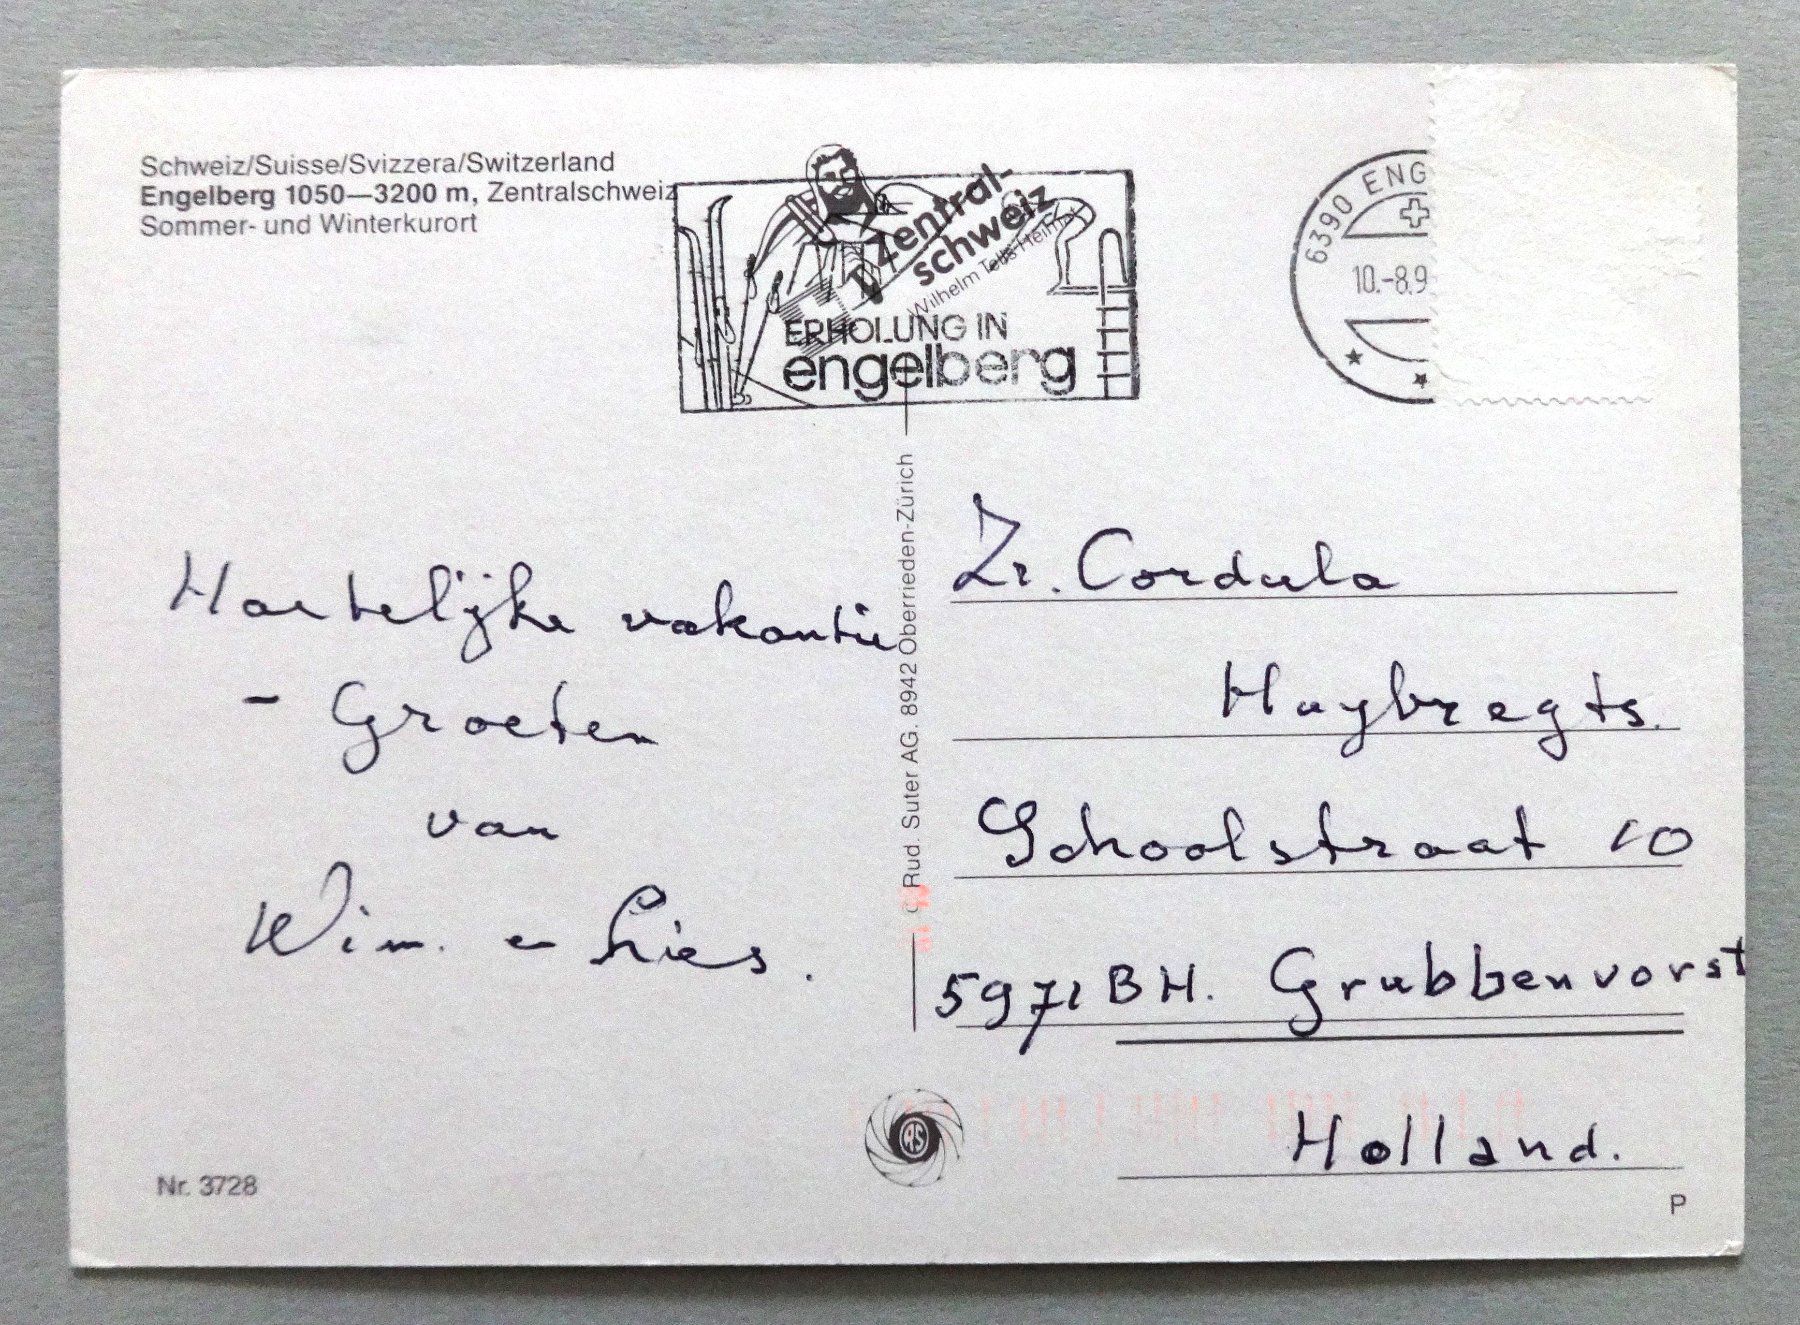 Schweiz/Suisse/Svizzera/Switzerland
Engelberg 1050—3200 m, Zentralschweiz
Sommer- und Winterkurort
Zentral-
schweiz
Wilhelm Tells Heimat
ERHOLUNG IN
engelberg
6390 ENG
10.-8.9
Hartelijke vakantie
- Groeten
van
Wim. en Lies.
© Rud. Suter AG. 8942 Oberrieden-Zürich
Zr. Cordula
Huybregts.
Schoolstraat 10
5971 BH. Grubbenvorst
Holland.
RS
Nr. 3728
P